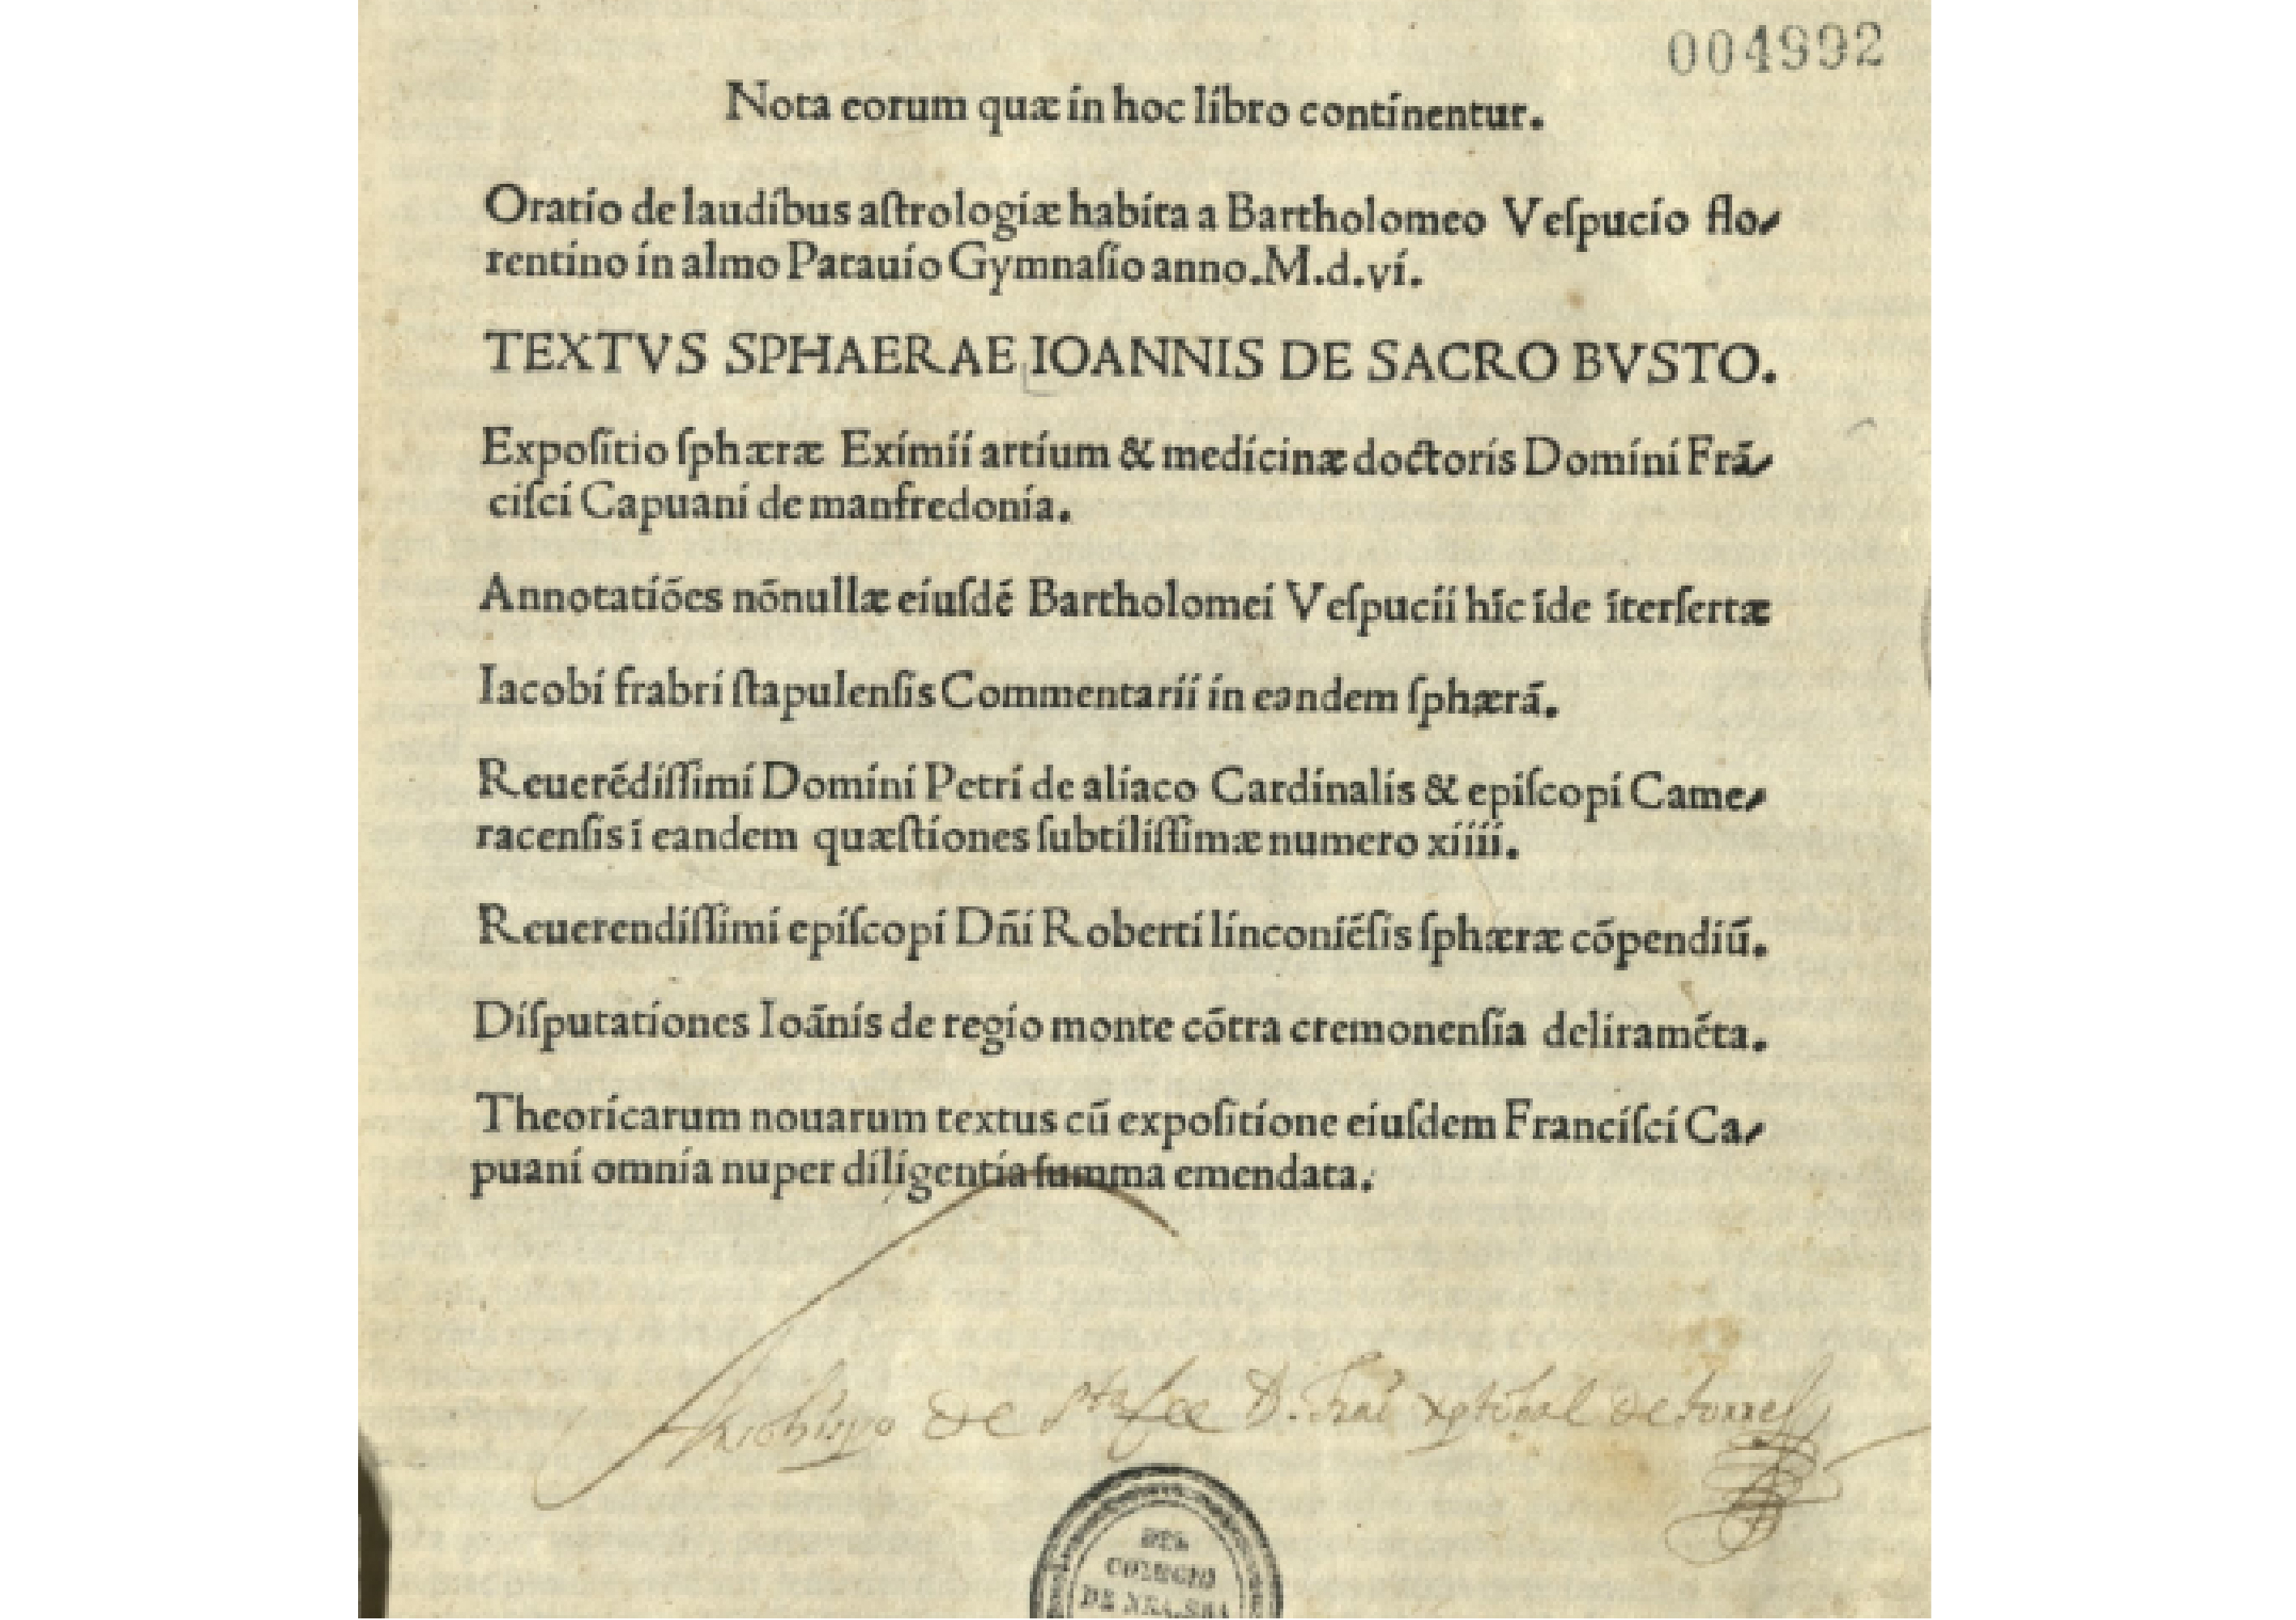 004992
Nota eorum quæ in hoc libro continentur.
Oratio de laudibus aſtrologiæ habita a Bartholomeo Veſpucio flo-
rentino in almo Patauio Gymnaſio anno.M.d.vi.
TEXTVS SPHAERAE IOANNIS DE SACRO BVSTO.
Expoſitio ſphæræ Eximii artium & medicinæ doctoris Domini Frā-
ciſci Capuani de manfredonia.
Annotatiōes nōnullæ eiuſdē Bartholomei Veſpucii hīc īde īterſertæ
Iacobi frabri ſtapulenſis Commentarii in eandem ſphærā.
Reuerēdiſſimi Domini Petri de aliaco Cardinalis & epiſcopi Came-
racenſis ī eandem quæſtiones ſubtiliſſimæ numero xiiii.
Reuerendiſſimi epiſcopi Dñi Roberti linconiēſis ſphæræ cōpendiū.
Diſputationes Ioānis de regio monte cōtra cremonenſia deliramēta.
Theoricarum nouarum textus cū expoſitione eiuſdem Franciſci Ca-
puani omnia nuper diligentia ſumma emendata.
de sta fee D. frai xptoual de torres
DEL
COLEGIO
DE NRA. SRA